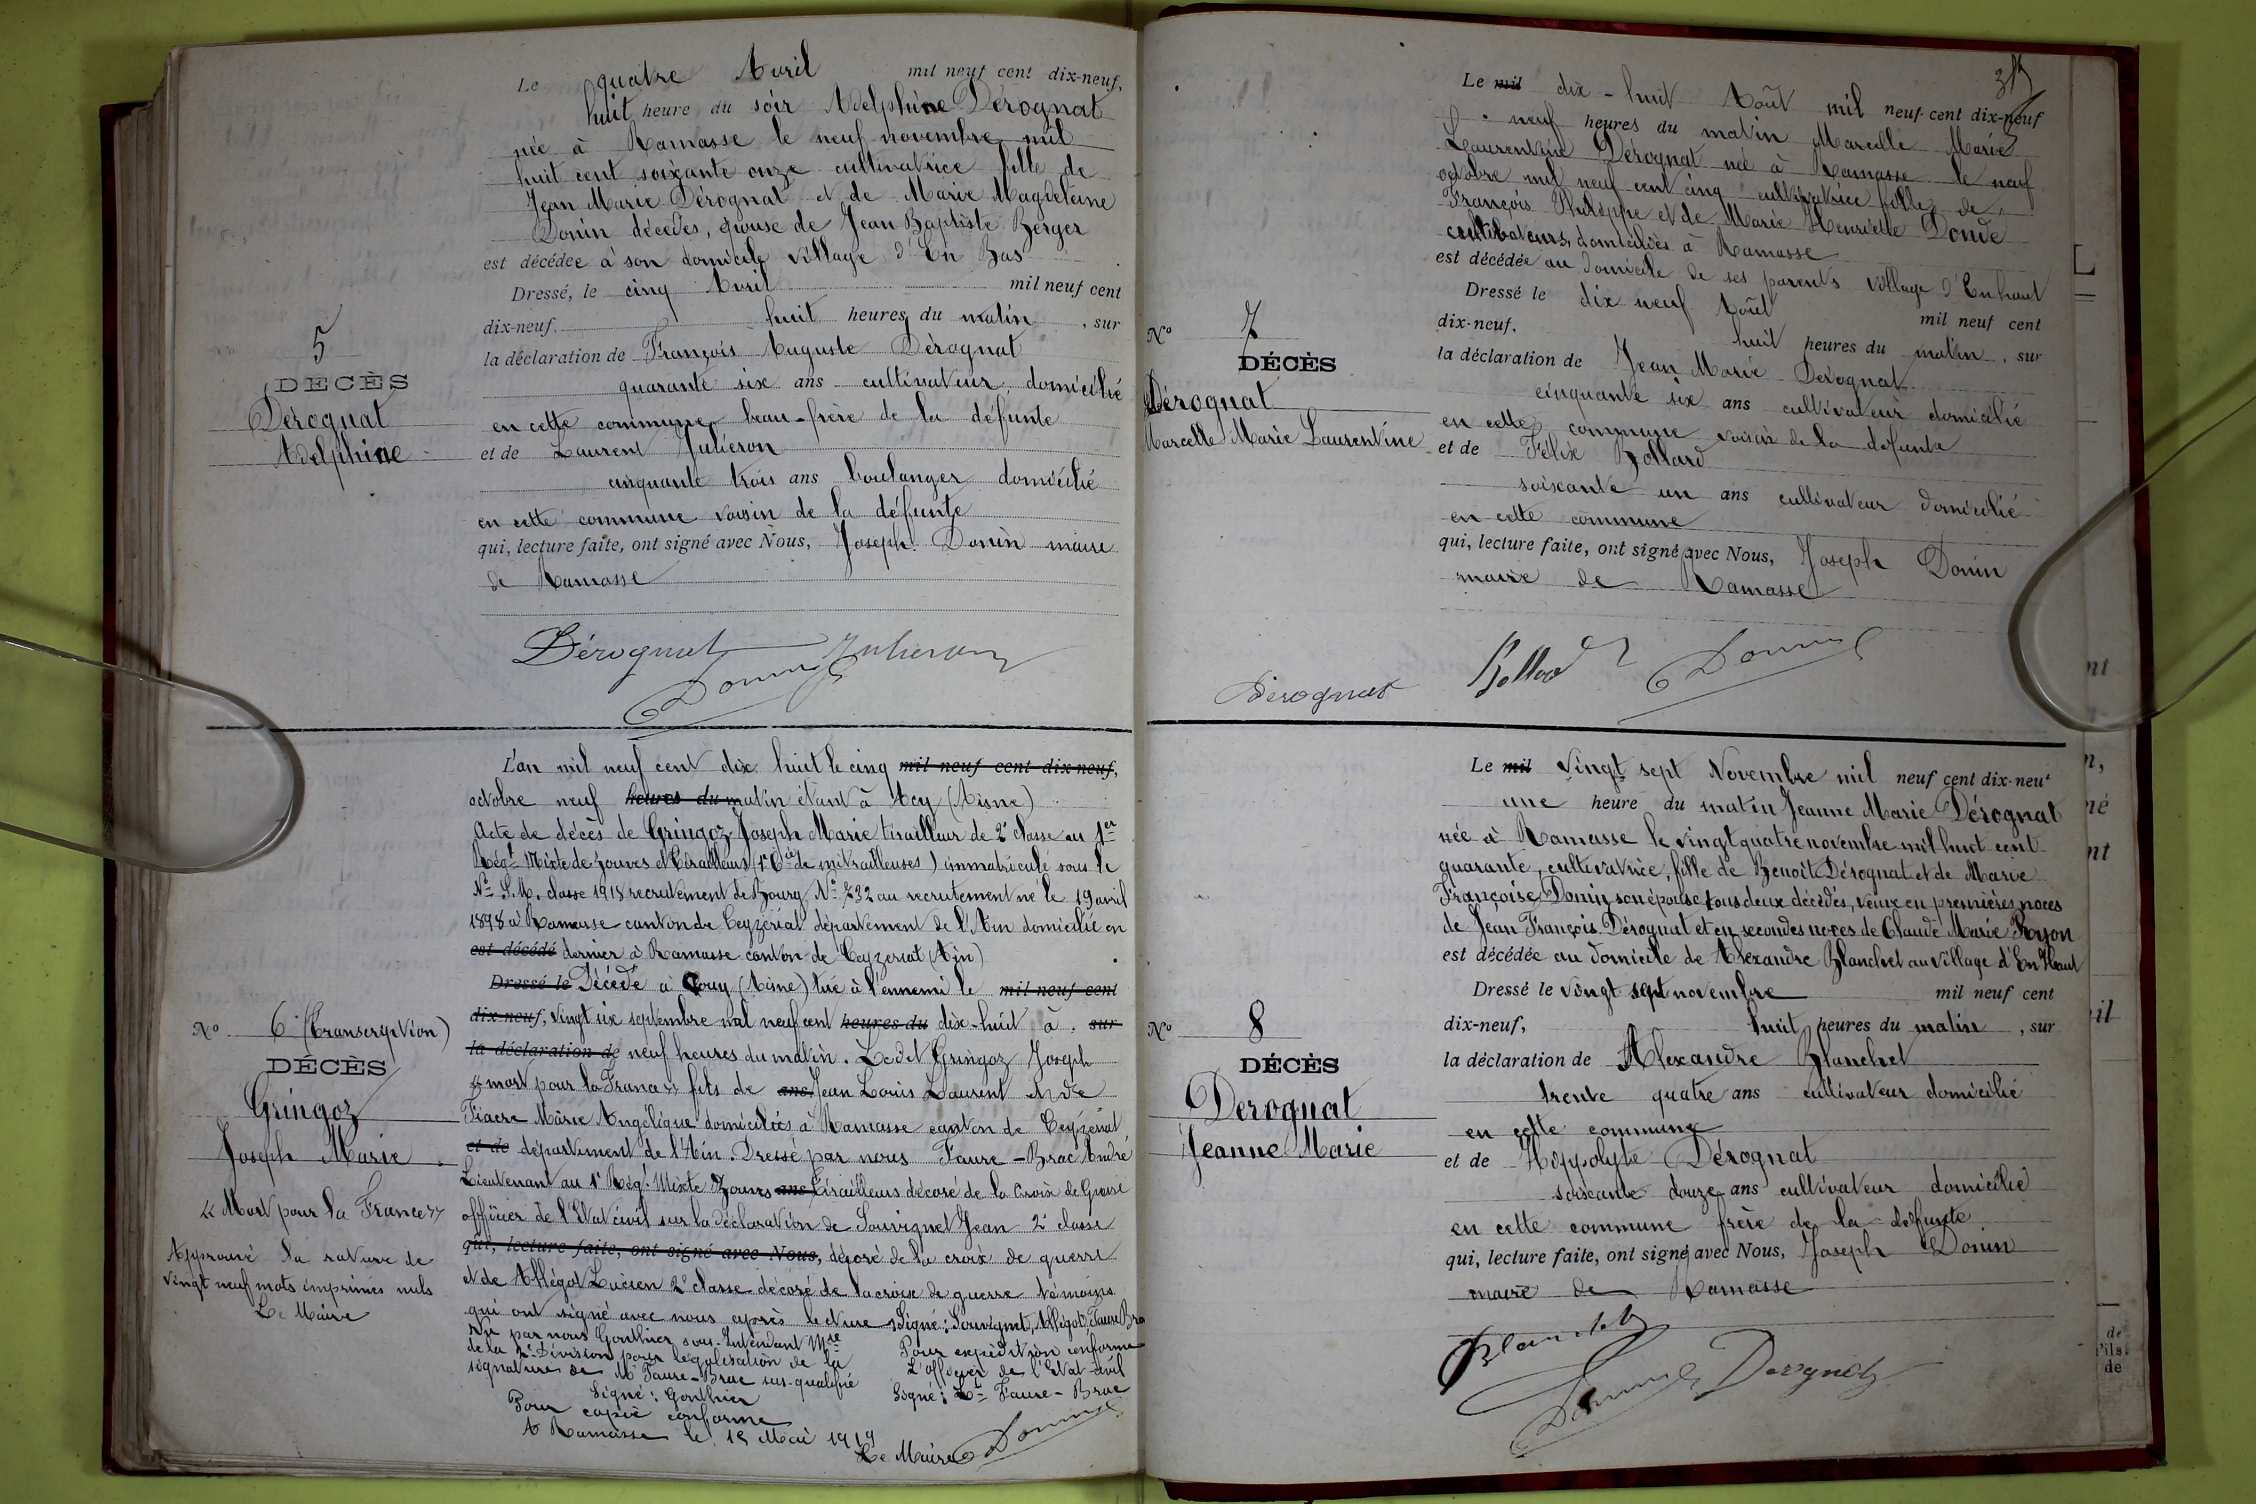 Le quatre Avril mil neuf cent dix-neuf,
huit heure du soir Adelphine Dérognat
née à Ramasse le neuf novembre mil
huit cent soixante onze cultivatrice fille de
Jean Marie Dérognat et de Marie Magdeleine
Donin décédés, épouse de Jean Baptiste Berger
est décédée à son domicile village d'En Bas
Dressé, le cinq Avril mil neuf cent
dix-neuf, huit heures du matin, sur
la déclaration de François Auguste Dérognat
quarante six ans cultivateur domicilié
en cette commune beau-frère de la défunte
et de Laurent Julieron
cinquante trois ans boulanger domicilié
en cette commune voisin de la défunte
qui, lecture faite, ont signé avec Nous, Joseph Donin maire
de Ramasse
5
DÉCÈS
Dérognat
Adelphine
Dérognat Julieron
Donin
L'an mil neuf cent dix huit le cinq mil neuf cent dix-neuf,
octobre neuf heures du matin étant à Acy (Aisne)
Acte de décès de Gringoz Joseph Marie tirailleur de 2e classe au 1er
Régt Mixte de zouaves et tirailleurs (1e Cie de mitrailleuses) immatriculé sous le
No S.M. classe 1918 recrutement de Bourg No 732 au recrutement né le 19 avril
1898 à Ramasse canton de Ceyzériat département de l'Ain domicilié en
est décédé dernier à Ramasse canton de Ceyzeriat (Ain)
Dressé le Décédé à Couy (Aisne) tué à l'ennemi le mil neuf cent
dix-neuf, vingt six septembre mil neuf cent heures du dix-huit à sur
la déclaration de neuf heures du matin. Ledit Gringoz Joseph
"mort pour la France" fils de ans, Jean Louis Laurent et de
Fiacre Marie Angélique domiciliés à Ramasse canton de Ceyzériat
et de département de l'Ain. Dressé par nous Faure-Brac André
Lieutenant au 1e Régt Mixte Zouaves ans, tirailleurs décoré de la Croix de Guerre
officier de l'Etat civil sur la déclaration de Souvignet Jean 2e classe
qui, lecture faite, ont signé avec Nous, décoré de la croix de guerre
et de Allégot Lucien 2e classe décoré de la croix de guerre témoins
qui ont signé avec nous après lecture Signé: Souvignet, Allégot, Faure Brac
Vu par nous Gonthier sous-Intendant Mre
de la 2e Division pour légalisation de la
signature de Mr Faure-Brac sus-qualifié
Signé: Gonthier
Pour expédition conforme
L'officier de l'Etat-civil
Signé: Lt Faure-Brac
Pour copie conforme
A Ramasse le 15 Mai 1919
Le Maire Donin
No 6 (Transcription)
DÉCÈS
Gringoz
Joseph Marie
"Mort pour la France"
Approuvé la rature de
vingt neuf mots imprimés nuls
Le Maire
Le mil dix-huit Août mil neuf cent dix-neuf
neuf heures du matin Marcelle Marie
Laurentine Dérognat née à Ramasse le neuf
octobre mil neuf cent cinq cultivatrice fille de
François Philippe et de Marie Henriette Donde
cultivateurs, domiciliés à Ramasse
est décédée au domicile de ses parents village d'Enhaut
Dressé le dix neuf Août mil neuf cent
dix-neuf, huit heures du matin, sur
la déclaration de Jean Marie Dérognat
cinquante six ans cultivateur domicilié
en cette commune voisin de la défunte
et de Félix Bollard
soixante un ans cultivateur domicilié
en cette commune
qui, lecture faite, ont signé avec Nous, Joseph Donin
maire de Ramasse
No 7
DÉCÈS
Dérognat
Marcelle Marie Laurentine
Dérognat Bollard Donin
Le mil vingt sept Novembre mil neuf cent dix-neuf
une heure du matin Jeanne Marie Dérognat
née à Ramasse le vingt quatre novembre mil huit cent
quarante, cultivatrice, fille de Benoit Dérognat et de Marie
Françoise Donin son épouse tous deux décédés, veuve en premières noces
de Jean François Dérognat et en secondes noces de Claude Marie Ryon
est décédée au domicile de Alexandre Blanchet au village d'En Haut
Dressé le vingt sept novembre mil neuf cent
dix-neuf, huit heures du matin, sur
la déclaration de Alexandre Blanchet
trente quatre ans cultivateur domicilié
en cette commune
et de Hippolyte Dérognat
soixante douze ans cultivateur domicilié
en cette commune frère de la défunte
qui, lecture faite, ont signé avec Nous, Joseph Donin
maire de Ramasse
No 8
DÉCÈS
Derognat
Jeanne Marie
Blanchet
Donin Derognat